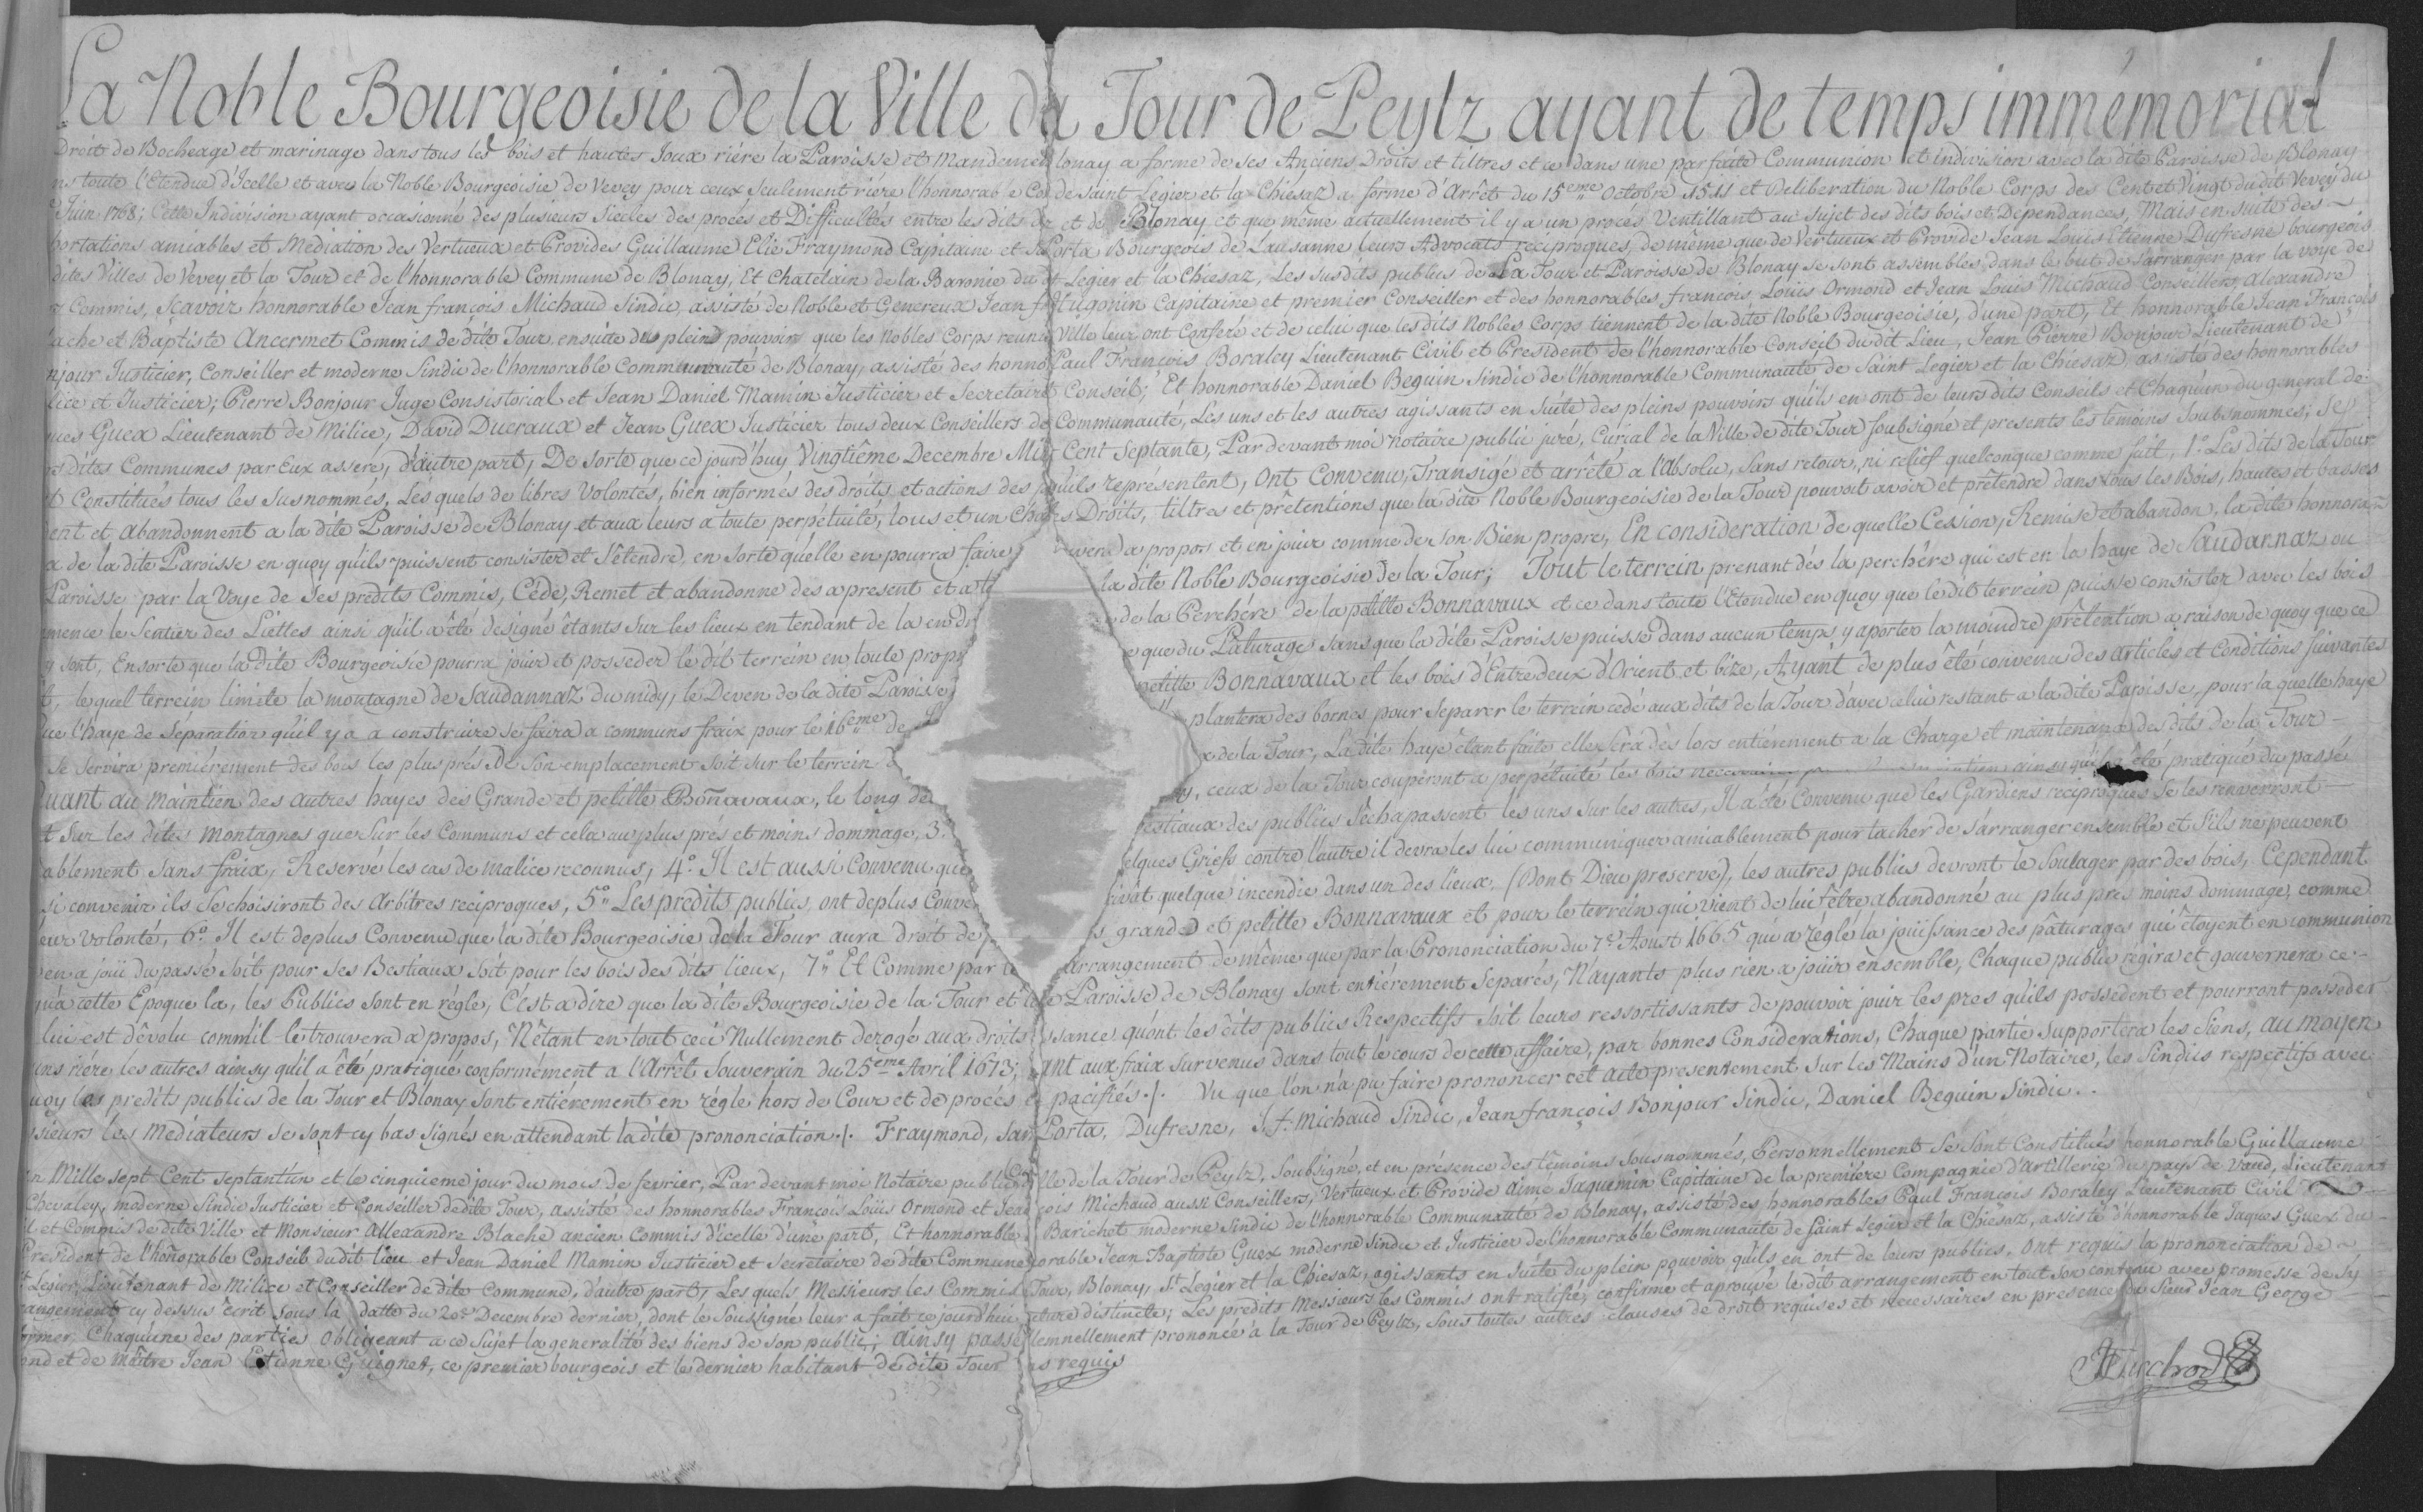 La Noble Bourgeoisie de la Ville da Tour de Peylz ayant de temps immémorial
Droit de Bocheage et marinage dans tous les bois et hautes Joux riére la Paroisse et Mandemen lonay a forme de ses Anciens Droits et tiltres et ce dans une parfaite Communion et indivision avec la dite Paroisse de Blonay
ns toute l'Etendue d'Icelle et avec la Noble Bourgeoisie de Vevey pour ceux seulement riére l'honnorable Co de Saint Legier et la Chiesaz a forme d'Arrêt du 15eme Octobre 1511 et Deliberation du Noble Corps des Cent et Vingt du dit Vevey du
Juin 1768; Cette Indivision ayant occasionné des plusieurs Siecles des procés et Difficultés entre les dits de et de Blonay et que même actuellement il y a un procés Ventillant au sujet des dits bois et Dépendances, Mais en suite des
portations amiables et Mediation des Vertueux et Provides Guillaume Elie Fraymond Capitaine et Porta Bourgeois de Lausanne leurs Advocats reciproques, de même que de Vertueux et Provide Jean Louis Etienne Dufresne bourgeois
dites Villes de Vevey et la Tour et de l'honnorable Commune de Blonay, Et Chatelain de la Baronie du Legier et la Chiesaz, Les susdits publics de La Tour et Paroisse de Blonay se sont assemblés dans le but de s'arranger par la voye de
Commis, Scavoir honnorable Jean françois Michaud Sindic, assisté de Noble et Genereux Jean Hugonin Capitaine et premier Conseiller et des honnorables, françois Louis Ormond et Jean Louis Michaud Conseillers, Alexandre
ache et Baptiste Ancermet Commis de dite Tour ensuite des pleins pouvoirs que les Nobles Corps reunis Ville leur ont Conferé et de celui que les dits Nobles Corps tiennent de la dite Noble Bourgeoisie, d'une part, Et honnorable Jean François
njour Justicier, Conseiller et moderne Sindic de l'honnorable Communauté de Blonay, assisté des honno Paul François Boraley Lieutenant Civil et President de l'honnorable Conseil du dit Lieu, Jean Pierre Bonjour Lieutenant de
lice et Justicier; Pierre Bonjour Juge Consistorial et Jean Daniel Mamin Justicier et Secretaire Conseil; Et honnorable Daniel Beguin Sindic de l'honnorable Communauté de Saint Legier et la Chiesaz, assisté des honnorables
ques Guex Lieutenant de Milice, David Ducraux et Jean Guex Justicier tous deux Conseillers de Communauté, Les uns et les autres agissants en Suite des pleins pouvoirs qu'ils en ont de leurs dits Conseils et Chaquun du general de
es dites Communes par Eux asseré, d'autre part, De sorte que ce jourd'huy Vingtiême Decembre Mil Cent Septante, Par devant moi Notaire public juré, Curial de la Ville de dite Tour soubsigné et presents les temoins Soubsnommés, Se
t Constitués tous les Susnommés, Lesquels de libres Volontés, bien informés des droits et actions des quils représentent, Ont Convenu, Transigé et arrêté a l'Absolu, Sans retour, ni relief quelconque comme suit, 1.º Les dits de la Tour
ent et Abandonnent a la dite Paroisse de Blonay et aux leurs a toute perpétuité, tous et un Cha es Droits, tiltres et prétentions que la dite Noble Bourgeoisie de la Tour pouvoit avoir et prétendre dans tous les Bois, hautes et basses
x de la dite Paroisse en quoy qu'ils puissent consister et s'étendre, en sorte qu'elle en pourra faire uvera a propos et en jouir comme de son Bien propre, En consideration de quelle Cession, Remise et abandon, la dite honnora
Paroisse par la Voye de Ses predits Commis, Cède, Remet et abandonne des a present et a la dite Noble Bourgeoisie de la Tour; Tout le terrein prenant dés la perchére qui est en la haye de Saudannaz ou
mence le Sentier des Liettes ainsi qu'il a été designé étants sur les lieux en tendant de la en de la Perchére de la petitte Bonnavaux et ce dans toute l'Etendue en quoy que le dit terrein puisse consister avec les bois
y sont, Ensorte que la dite Bourgeoisie pourra jouir et posseder le dit terrein en toute propr e que du Paturage sans que la dite Paroisse puisse dans aucun temps y aporter la moindre prétention a raison de quoy que ce
t, le quel terrein limite la montagne de Saudannaz du midy, le Deven de la dite Paroisse petitte Bonnavaux et les bois d'Entredeux d'Orient et bize, Ayant de plus été convenu des articles et Conditions suivantes
ue l'haye de Séparation qu'il y a a construire se faira a communs fraix pour le 16eme de plantera des bornes pour Separer le terrein cedé aux dits de la Tour d'avec celui restant a la dite Paroisse, pour la quelle haye
Se Servira premiérement des bois les plus prés de Son emplacement Soit sur le terrein x de la Tour, La dite haye étant faite elle sera dès lors entiérement a la Charge et maintenance des dits de la Tour
uant au Maintien des autres hayes des Grande et petitte Boñavaux, le long de ceux de la Tour couperont a perpétuité les bois ainsy qu'il a été pratiqué du passé
t Sur les dites Montagnes que Sur les Communs et cela au plus prés et moins dommage, 3. estiaux des publics S'échapassent les uns sur les autres, Il a été Convenu que les Gardiens reciproques Se les renverront
ablement Sans fraix, Reservé les cas de malice reconnus; 4.º Il est aussi Convenu que elques Griefs contre l'autre il devra les lui communiquer amiablement pour tacher de s'arranger ensemble et s'ils ne peuvent
si convenir ils Se choisiront des Arbitres reciproques, 5.º Les predits publics, ont de plus Conve rivât quelque incendie dans un des lieux, (Dont Dieu preserve), les autres publics devront le Soulager par des bois, Cependant
eur Volonté, 6.º Il est de plus Convenu que la dite Bourgeoisie de la Tour aura droit de s grande et petitte Bonnavaux et pour le terrein qui vient de lui être abandonné au plus pres moins dommage, comme
en a joüi du passé Soit pour Ses Bestiaux Soit pour les bois des dits lieux, 7.º Et Comme par arrangement de même que par la Prononciation du 7e Aoust 1665 qui a réglé la joüissance des pâturages qui étoyent en communion
qu'a cette Epoque la, les Publics Sont en régle, C'est a dire que la dite Bourgeoisie de la Tour et Paroisse de Blonay Sont entiérement Separés, N'ayants plus rien a joüir ensemble, Chaque public régira et gouvernera ce
lui est dévolu comm'il le trouvera a propos, N'étant en tout ceci Nullement derogé aux droits ssance qu'ont les dits publics Respectifs Soit leurs ressortissants de pouvoir jouir les pres qu'ils possedent et pourront posseder
uns riére les autres ainsy qu'il a été pratiqué conformément a l'Arrêt Souverain du 25eme Avril 1673; ant aux fraix survenus dans tout le cours de cette affaire, par bonnes Considerations, Chaque partie Supportera les Siens, au moyen
uoy les predits publics de la Tour et Blonay Sont entiérement en régle hors de Cour et de procés pacifiés./. Vu que l'on n'a pu faire prononcer cet acte presentement Sur les Mains d'un Notaire, les Sindics respectifs avec
ssieurs les Mediateurs se sont cy bas signés en attendant la dite prononciation./. Fraymond, Porta, Dufresne, J. f. Michaud Sindic, Jean françois Bonjour Sindic, Daniel Beguin Sindic.
n Mille Sept Cent Septant'un et le cinquieme jour du mois de fevrier, Par devant moi Notaire public lle de la Tour de Peylz, Soubsigné, et en présence des témoins Sousnommés, Personnellement Se Sont Constitués honnorable Guillaume
Chevaley, moderne Sindic Justicier et Conseiller de dite Tour, assisté des honnorables François Loüis Ormond et Jean çois Michaud aussi Conseillers, Vertueux et Provide Aimé Jaquemin Capitaine de la premiere Compagnie d'Artillerie du pays de Vaud, Lieutenant
il et Commis de dite Ville et Monsieur Allexandre Blache ancien Commis d'icelle d'une part, Et honnorable Barichet moderne Sindic de l'honnorable Communauté de Blonay, assisté des honnorables Paul François Boraley Lieutenant Civil
President de l'hoñorable Conseil du dit lieu et Jean Daniel Mamin Justicier et Secretaire de dite Commune orable Jean Baptiste Guex moderne Sindic et Justicier de l'honnorable Communauté de Saint Legier et la Chiesaz, assisté d'honnorable Jaques Guex du
Legier, Lieutenant de Milice et Conseiller de dite Commune, d'autre part, Les quels Messieurs les Commis Tour, Blonay, St Legier et la Chiesaz, agissants en Suite du plein pouvoir qu'ils en ont de leurs publics, ont requis la prononciation de
rangement cy dessus écrit Sous la datte du 20e Decembre dernier, dont le Soussigné leur a fait ce jourd'hui ecture distincte; Les predits Messieurs les Commis ont ratifié, confirmé et aprouvé le dit arrangement en tout son contenu avec promesse de s'y
ormer, Chaquune des parties Obligeant a ce Sujet la generalité des biens de Son public; Ainsy passé lemnellement prononcé a la Tour de Peylz, Sous toutes autres clauses de droit requises et necessaires en presence du Sieur Jean George
ond et de Maître Jean Etienne Guignet, ce premier bourgeois et le dernier habitant de dite Tour ns requis